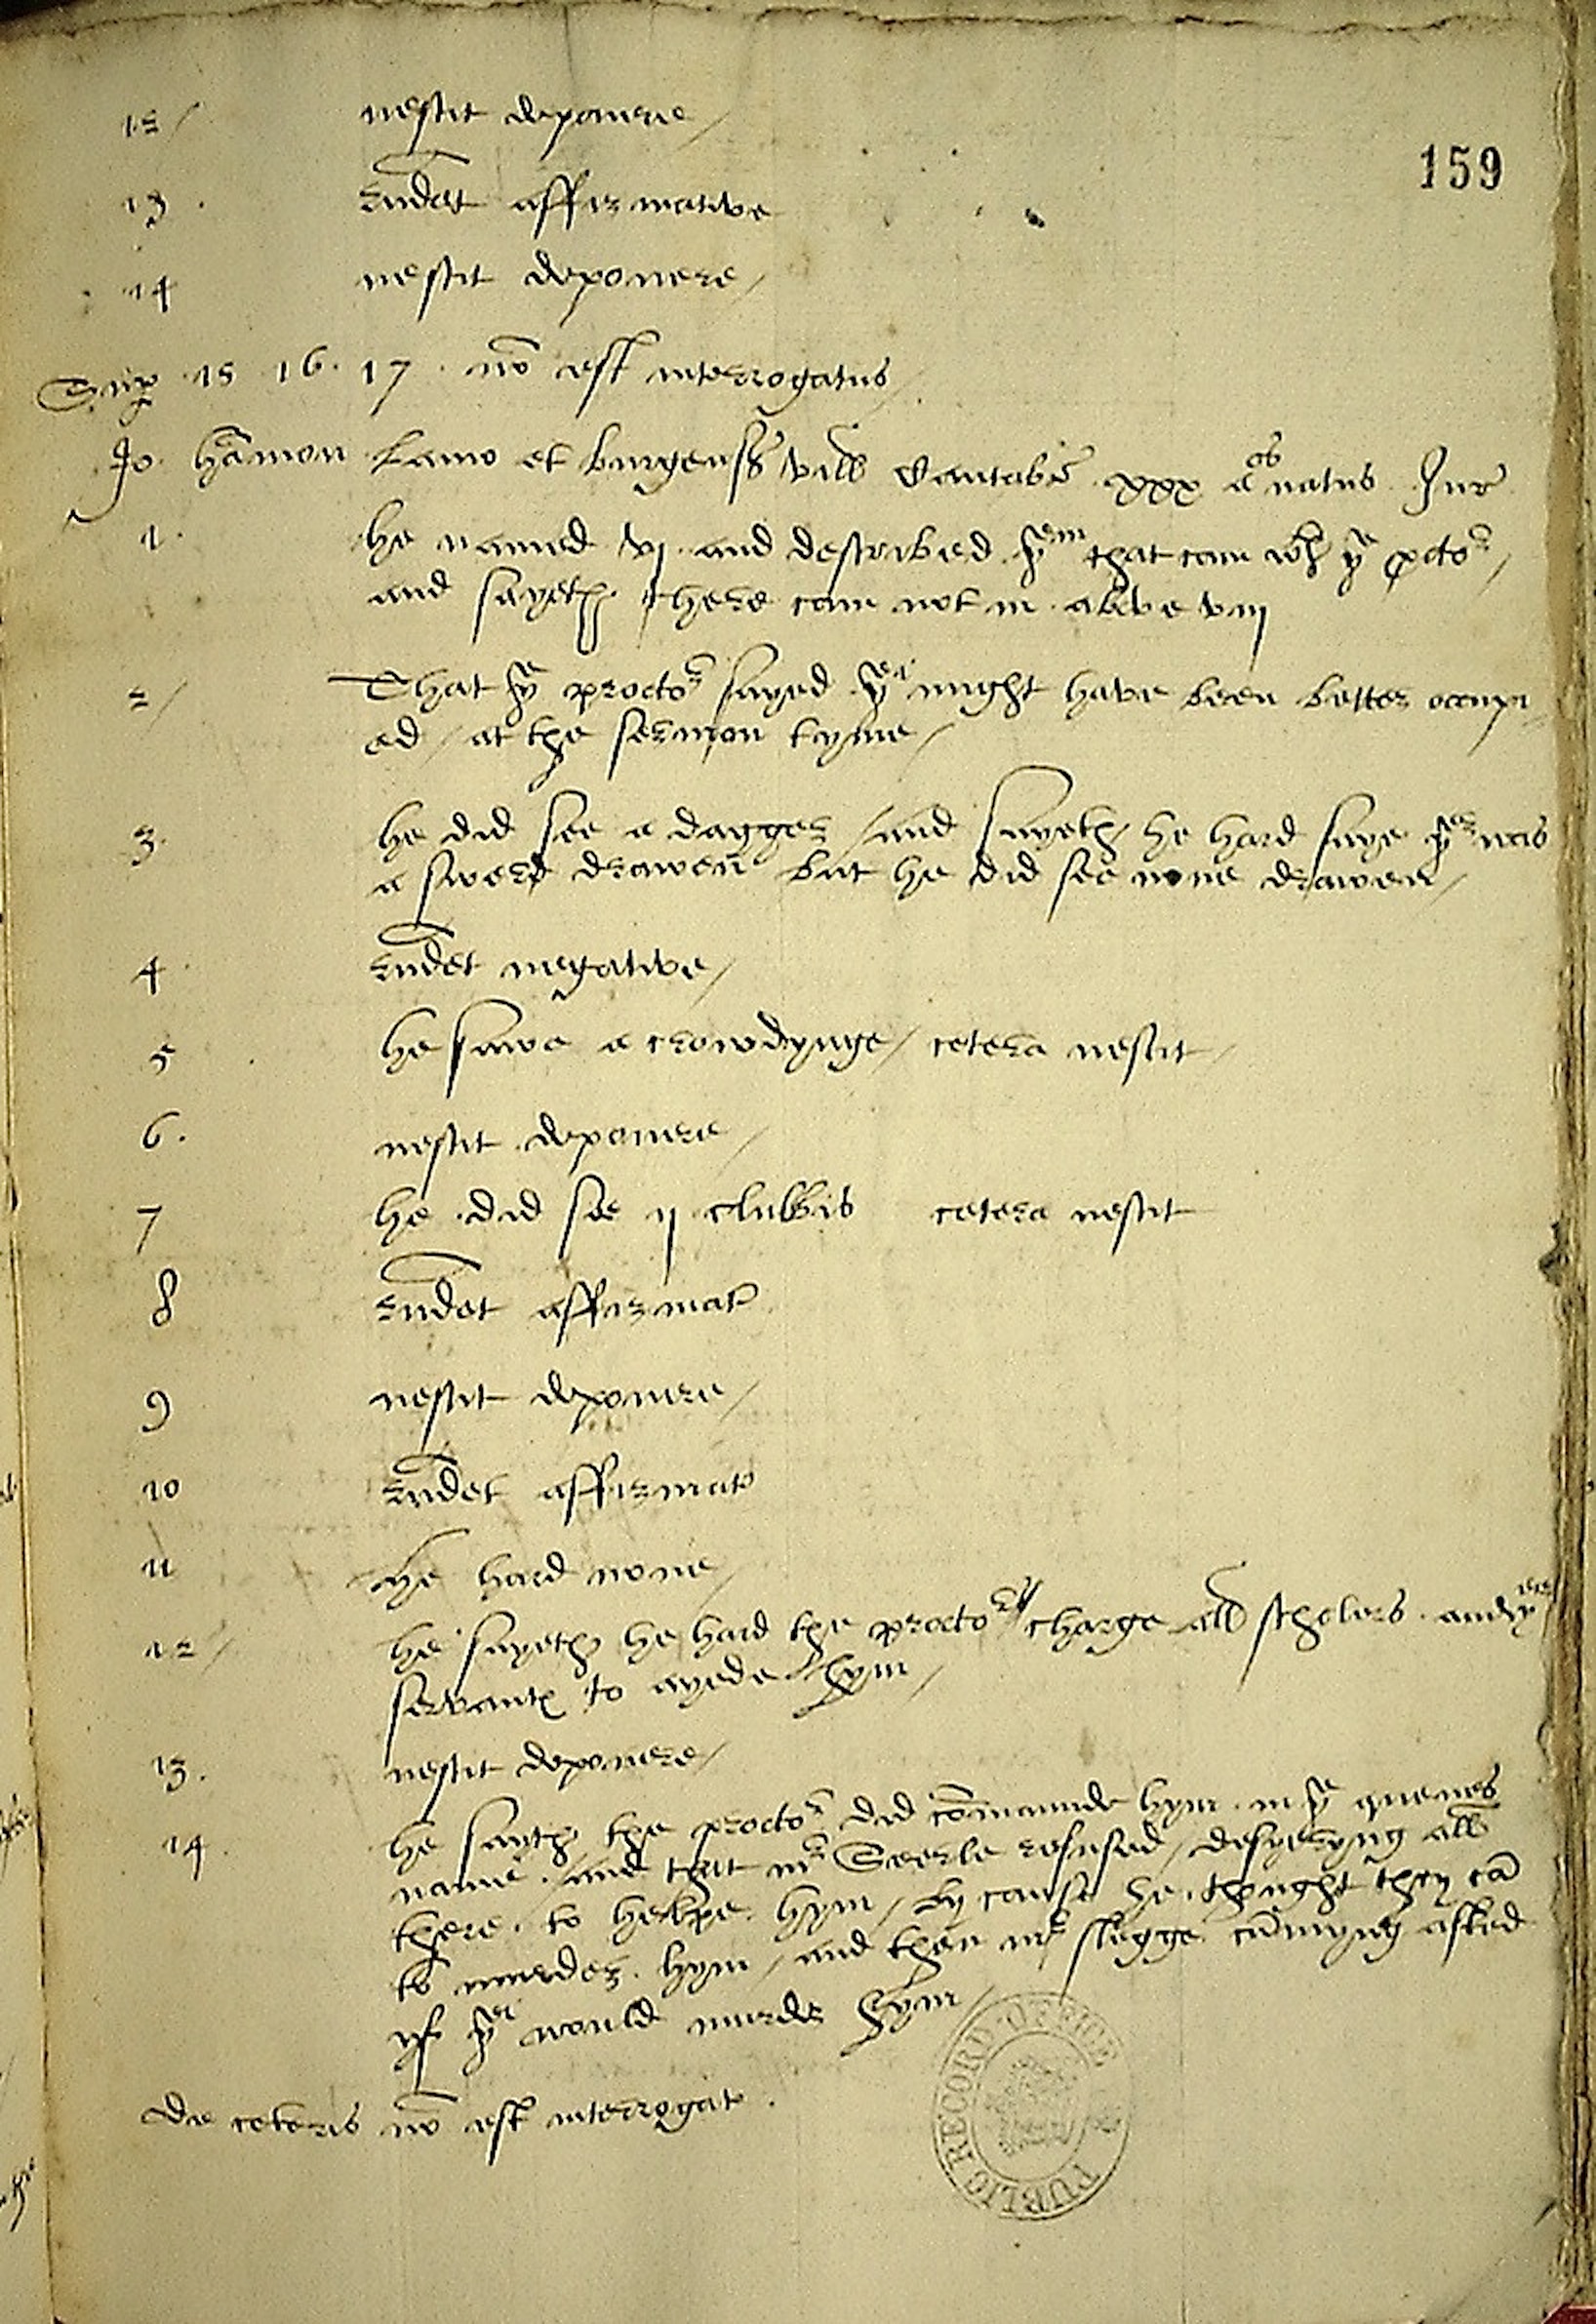 159
12 / nescit deponere /
13 . Rndet affirmative
14 nescit deponere /
Sup 15 16 . 17 . nō est interrogatus /
Jo hāmon et burgenss vill Cantabr xxx aōs natus Jur
1 . he named vj and described yem that cam wth ye pctor /
and sayeth there cam not in above viij
2 / That ye proctor sayed yei might have been better occupi
ed / at the sermon tyme /
3 . he did see a dagger / and sayeth he hard saye yer was
a swerd drawen but he did see none drawen /
4 . Rndet negative /
5 he sawe a crowdynge / cetera nescit /
6 . nescit deponere /
7 he did see ij clubbis cetera nescit
8 Rndet affirmat
9 nescit deponere /
10 Rndet affirmat
11 he hard none /
12 / he sayeth he hard the proctor charge all scholers and yeir
servants to ayede hym /
13 . nescit deponere /
14 . he sayth the proctor did cōmaunde hym in ye quenes
name / and that mr Seerle refused / desyeryng all
there to helpe hym / by cause he thought they cā
to murder hym / and then mr slegge cūmyng asked
yf yei would murder hym /
De ceteris nō est interrogat .
PUBLIC RECORD OFFICE